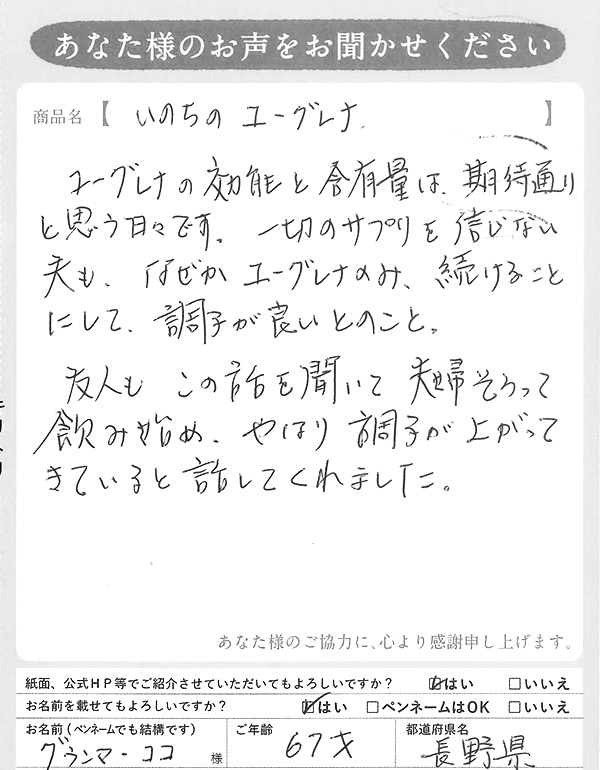 あなた様のお声をお聞かせください
商品名【 いのちの ユーグレナ 】
ユーグレナの効能と含有量は、期待通り
と思う日々です。一切のサプリを信じない
夫も、なぜかユーグレナのみ、続けること
にして、調子が良いとのこと。
友人も この話を聞いて 夫婦そろって
飲み始め、やはり 調子が上がって
きていると 話してくれました。
あなた様のご協力に、心より感謝申し上げます。
紙面、公式HP等でご紹介させていただいてもよろしいですか？ ☑はい □いいえ
お名前を載せてもよろしいですか？ ☑はい □ペンネームはOK □いいえ
お名前(ペンネームでも結構です) ご年齢 都道府県名
グランマーココ 様 67才 長野県